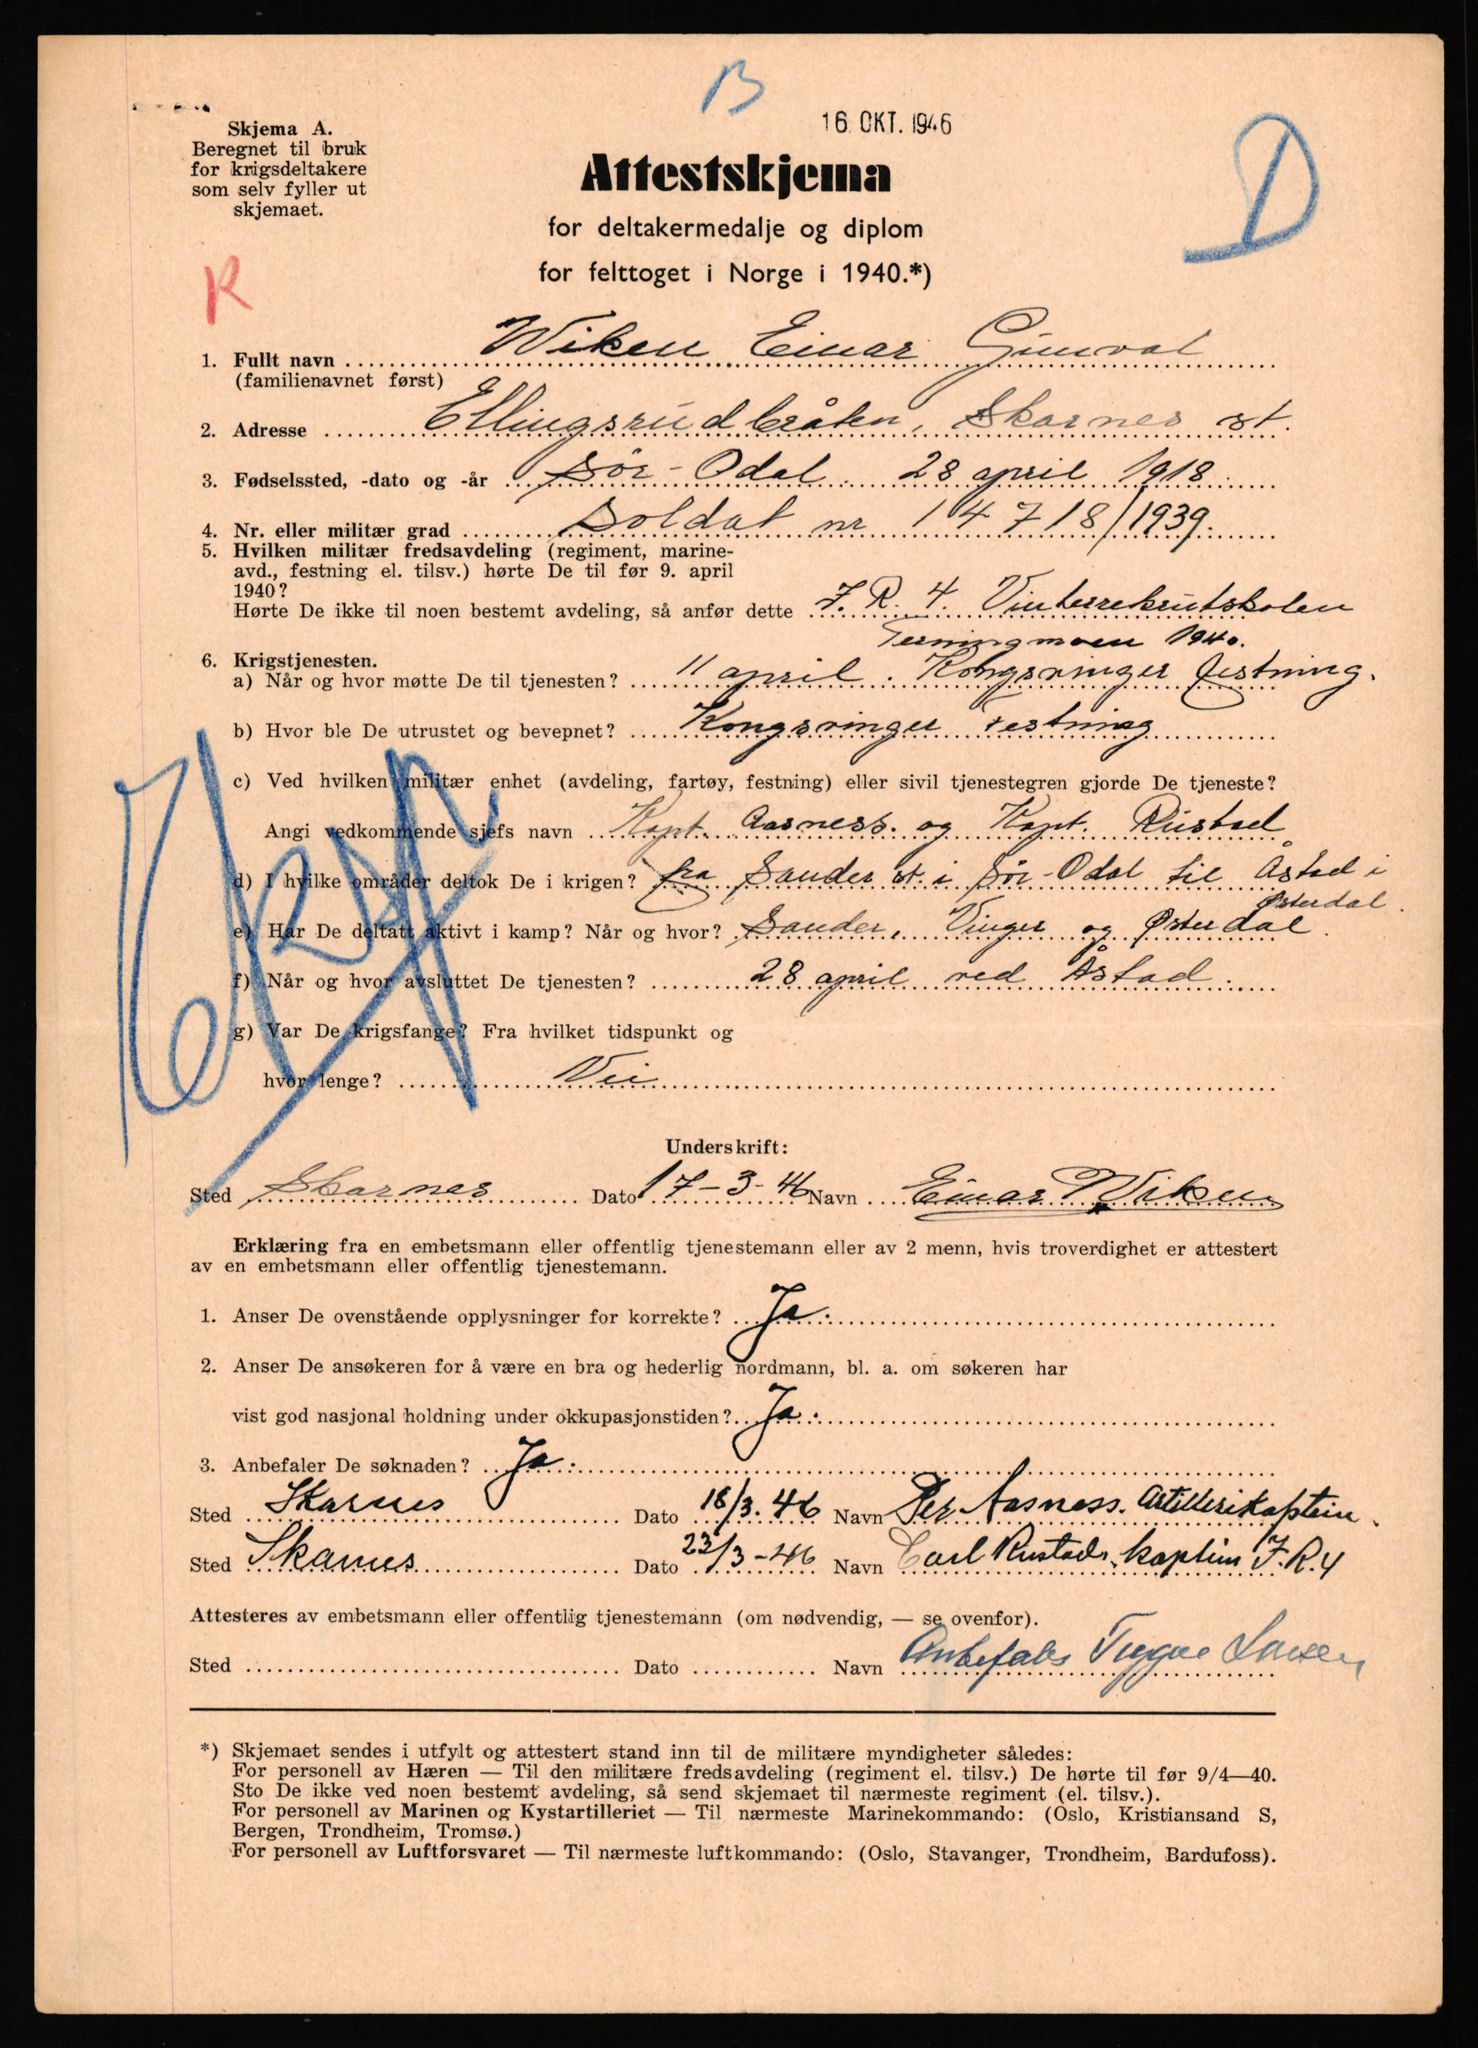 B
16 OKT. 1946
D
Skjema A.
Beregnet til bruk
for krigsdeltakere
som selv fyller ut
skjemaet.
Attestskjema
for deltakermedalje og diplom
for felttoget i Norge i 1940.*)
R
1. Fullt navn Wiken Einar Gunval
(familienavnet først)
2. Adresse Ellingsrudbråten, Skarnes st.
3. Fødselssted, -dato og -år Sør-Odal 28 april 1918
4. Nr. eller militær grad Soldat nr 14718/1939.
5. Hvilken militær fredsavdeling (regiment, marine-
avd., festning el. tilsv.) hørte De til før 9. april
1940?
Hørte De ikke til noen bestemt avdeling, så anfør dette I.R. 4. Vinterrekrutskolen
Terningmoen 1940.
6. Krigstjenesten.
a) Når og hvor møtte De til tjenesten? 11 april. Kongsvinger festning.
b) Hvor ble De utrustet og bevepnet? Kongsvinger Festning
c) Ved hvilken militær enhet (avdeling, fartøy, festning) eller sivil tjenestegren gjorde De tjeneste?
Angi vedkommende sjefs navn Kapt. Aasness. og Kapt. Rustad
d) I hvilke områder deltok De i krigen? fra Sander st. i Sør-Odal til Åstad i
Østerdal.
e) Har De deltatt aktivt i kamp? Når og hvor? Sander, Vinger og Østerdal.
f) Når og hvor avsluttet De tjenesten? 28 april ved Åstad.
g) Var De krigsfange? Fra hvilket tidspunkt og
hvor lenge? Nei
Underskrift:
Sted Skarnes Dato 17-3-46 Navn Einar Wiken
Erklæring fra en embetsmann eller offentlig tjenestemann eller av 2 menn, hvis troverdighet er attestert
av en embetsmann eller offentlig tjenestemann.
1. Anser De ovenstående opplysninger for korrekte? Ja.
2. Anser De ansøkeren for å være en bra og hederlig nordmann, bl. a. om søkeren har
vist god nasjonal holdning under okkupasjonstiden? Ja.
3. Anbefaler De søknaden? Ja.
Sted Skarnes Dato 18/3.46 Navn Per Aasness. Artillerikaptein.
Sted Skarnes Dato 23/3-46 Navn Carl Rustad, kaptein I.R.4
Attesteres av embetsmann eller offentlig tjenestemann (om nødvendig, — se ovenfor).
Sted Dato Navn Anbefales Trygve Larsen
*) Skjemaet sendes i utfylt og attestert stand inn til de militære myndigheter således:
For personell av Hæren — Til den militære fredsavdeling (regiment el. tilsv.) De hørte til før 9/4—40.
Sto De ikke ved noen bestemt avdeling, så send skjemaet til nærmeste regiment (el. tilsv.).
For personell av Marinen og Kystartilleriet — Til nærmeste Marinekommando: (Oslo, Kristiansand S,
Bergen, Trondheim, Tromsø.)
For personell av Luftforsvaret — Til nærmeste luftkommando: (Oslo, Stavanger, Trondheim, Bardufoss).